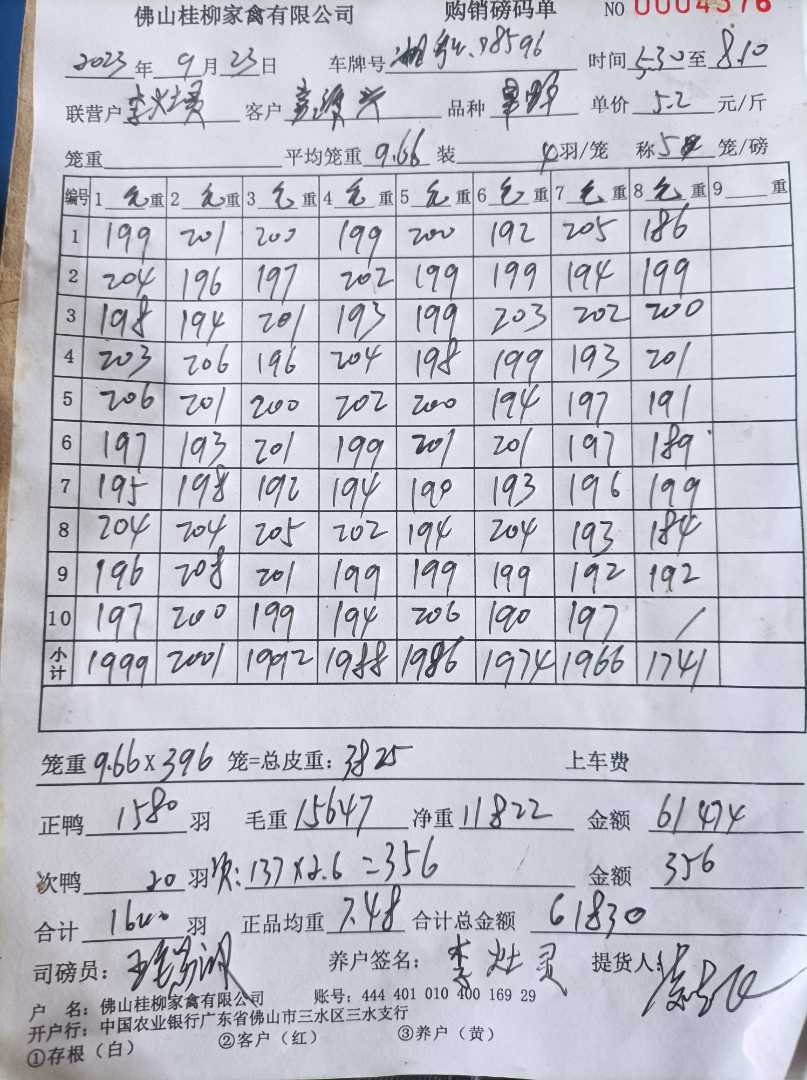 佛山桂柳家禽有限公司 购销磅码单 NO 0004376
2023年9月23日 车牌号 湘 98596 时间 530 至 8.10
联营户 李灶灵 客户 兴 品种 单价 5.2 元/斤
笼重 平均笼重 9.66 装 4 羽/笼 称 5 笼/磅
编号 1 毛重 2 毛重 3 毛重 4 毛重 5 毛重 6 毛重 7 毛重 8 毛重 9 重
1 199 201 200 199 200 192 205 186
2 204 196 197 202 199 199 194 199
3 198 194 201 193 199 203 202 200
4 203 206 196 204 198 199 193 201
5 206 201 200 202 200 194 197 191
6 197 193 201 199 201 201 197 189
7 195 198 192 194 190 193 196 199
8 204 204 205 202 194 204 193 184
9 196 208 201 199 199 199 192 192
10 197 200 199 194 206 190 197 /
小计 1999 2001 1992 1988 1986 1974 1966 1741
笼重 9.66 X 396 笼=总皮重: 3825 上车费
正鸭 1580 羽 毛重 15647 净重 11822 金额 61474
次鸭 20 羽 次: 137 X 2.6 = 356 金额 356
合计 1600 羽 正品均重 7.48 合计总金额 61830
司磅员: 养户签名: 李灶灵 提货人:
户 名: 佛山桂柳家禽有限公司 账号: 444 401 010 400 169 29
开户行: 中国农业银行广东省佛山市三水区三水支行
①存根（白） ②客户（红） ③养户（黄）